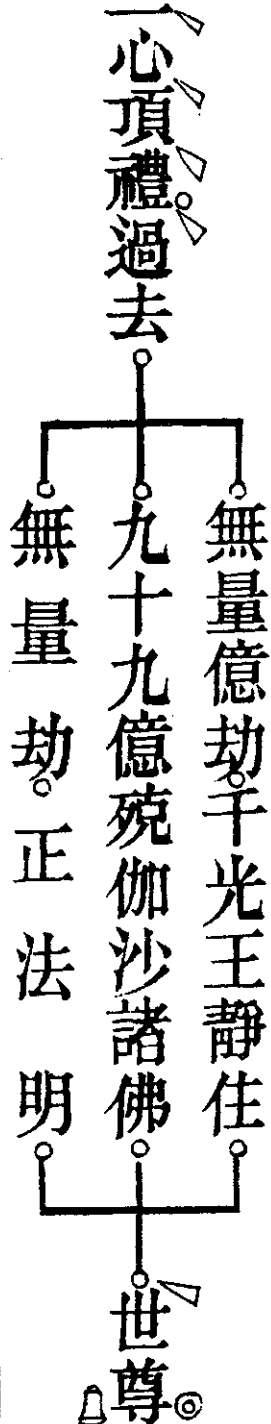 一心頂禮。過去
無量億劫。千光王靜住
九十九億殑伽沙諸佛
無量劫。正法明
世尊